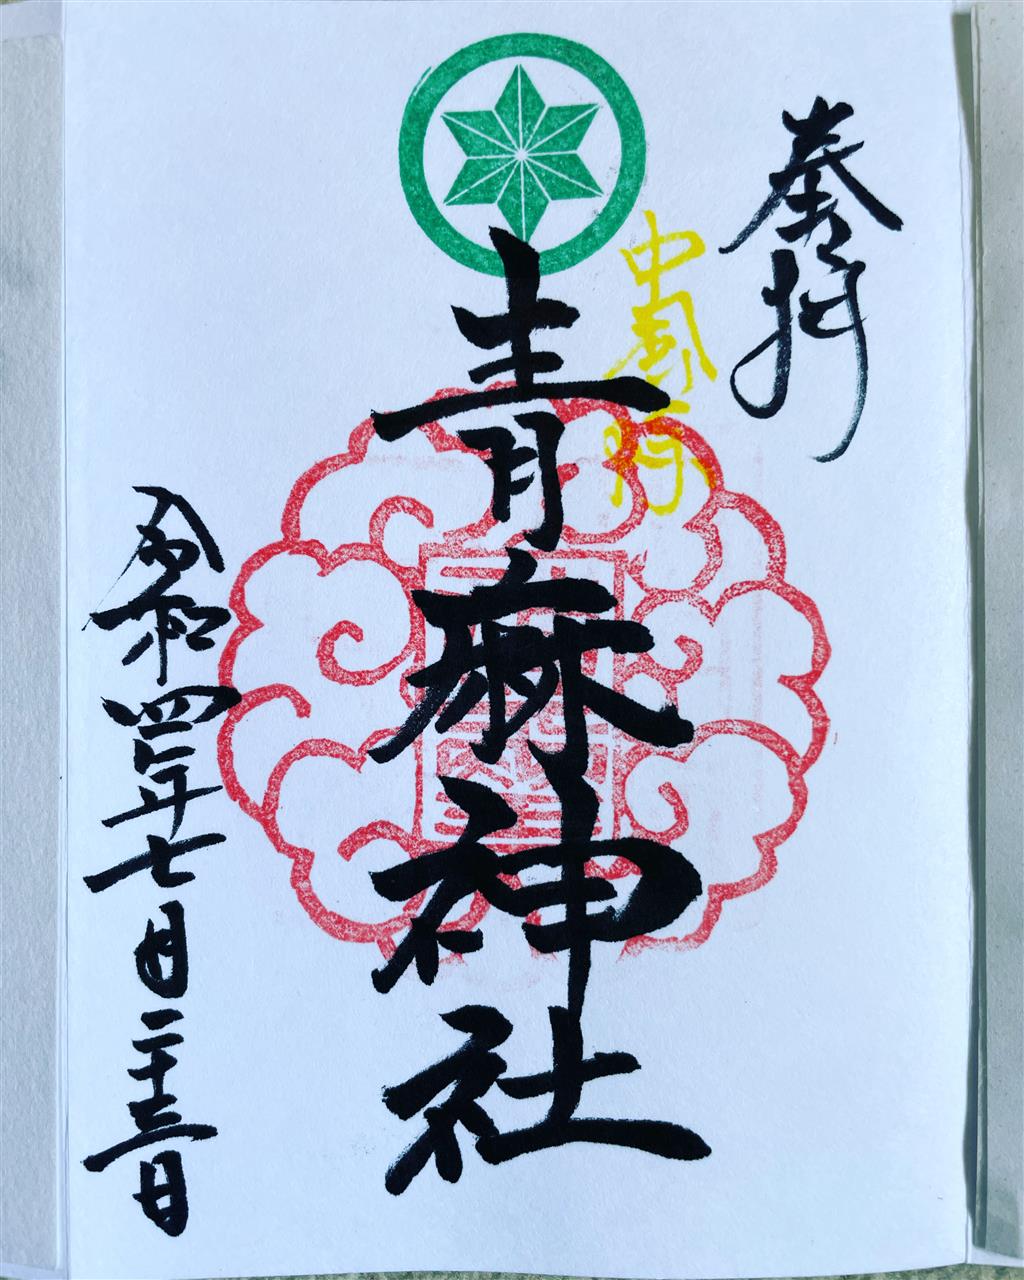 奉拝
中風除
青麻神社
令和四年七月二十三日